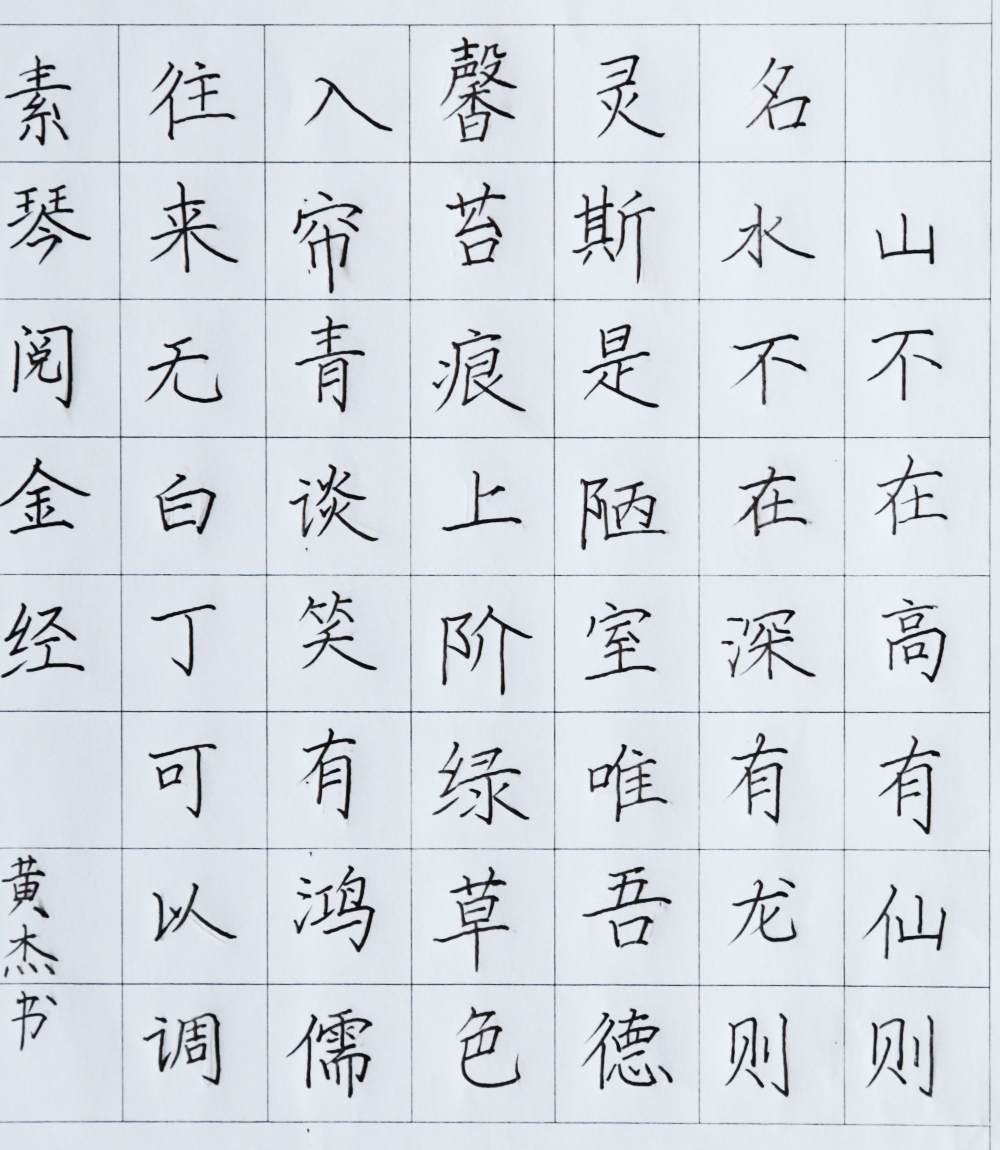 山不在高有仙则
名水不在深有龙则
灵斯是陋室唯吾德
馨苔痕上阶绿草色
入帘青谈笑有鸿儒
往来无白丁可以调
素琴阅金经
黄杰书